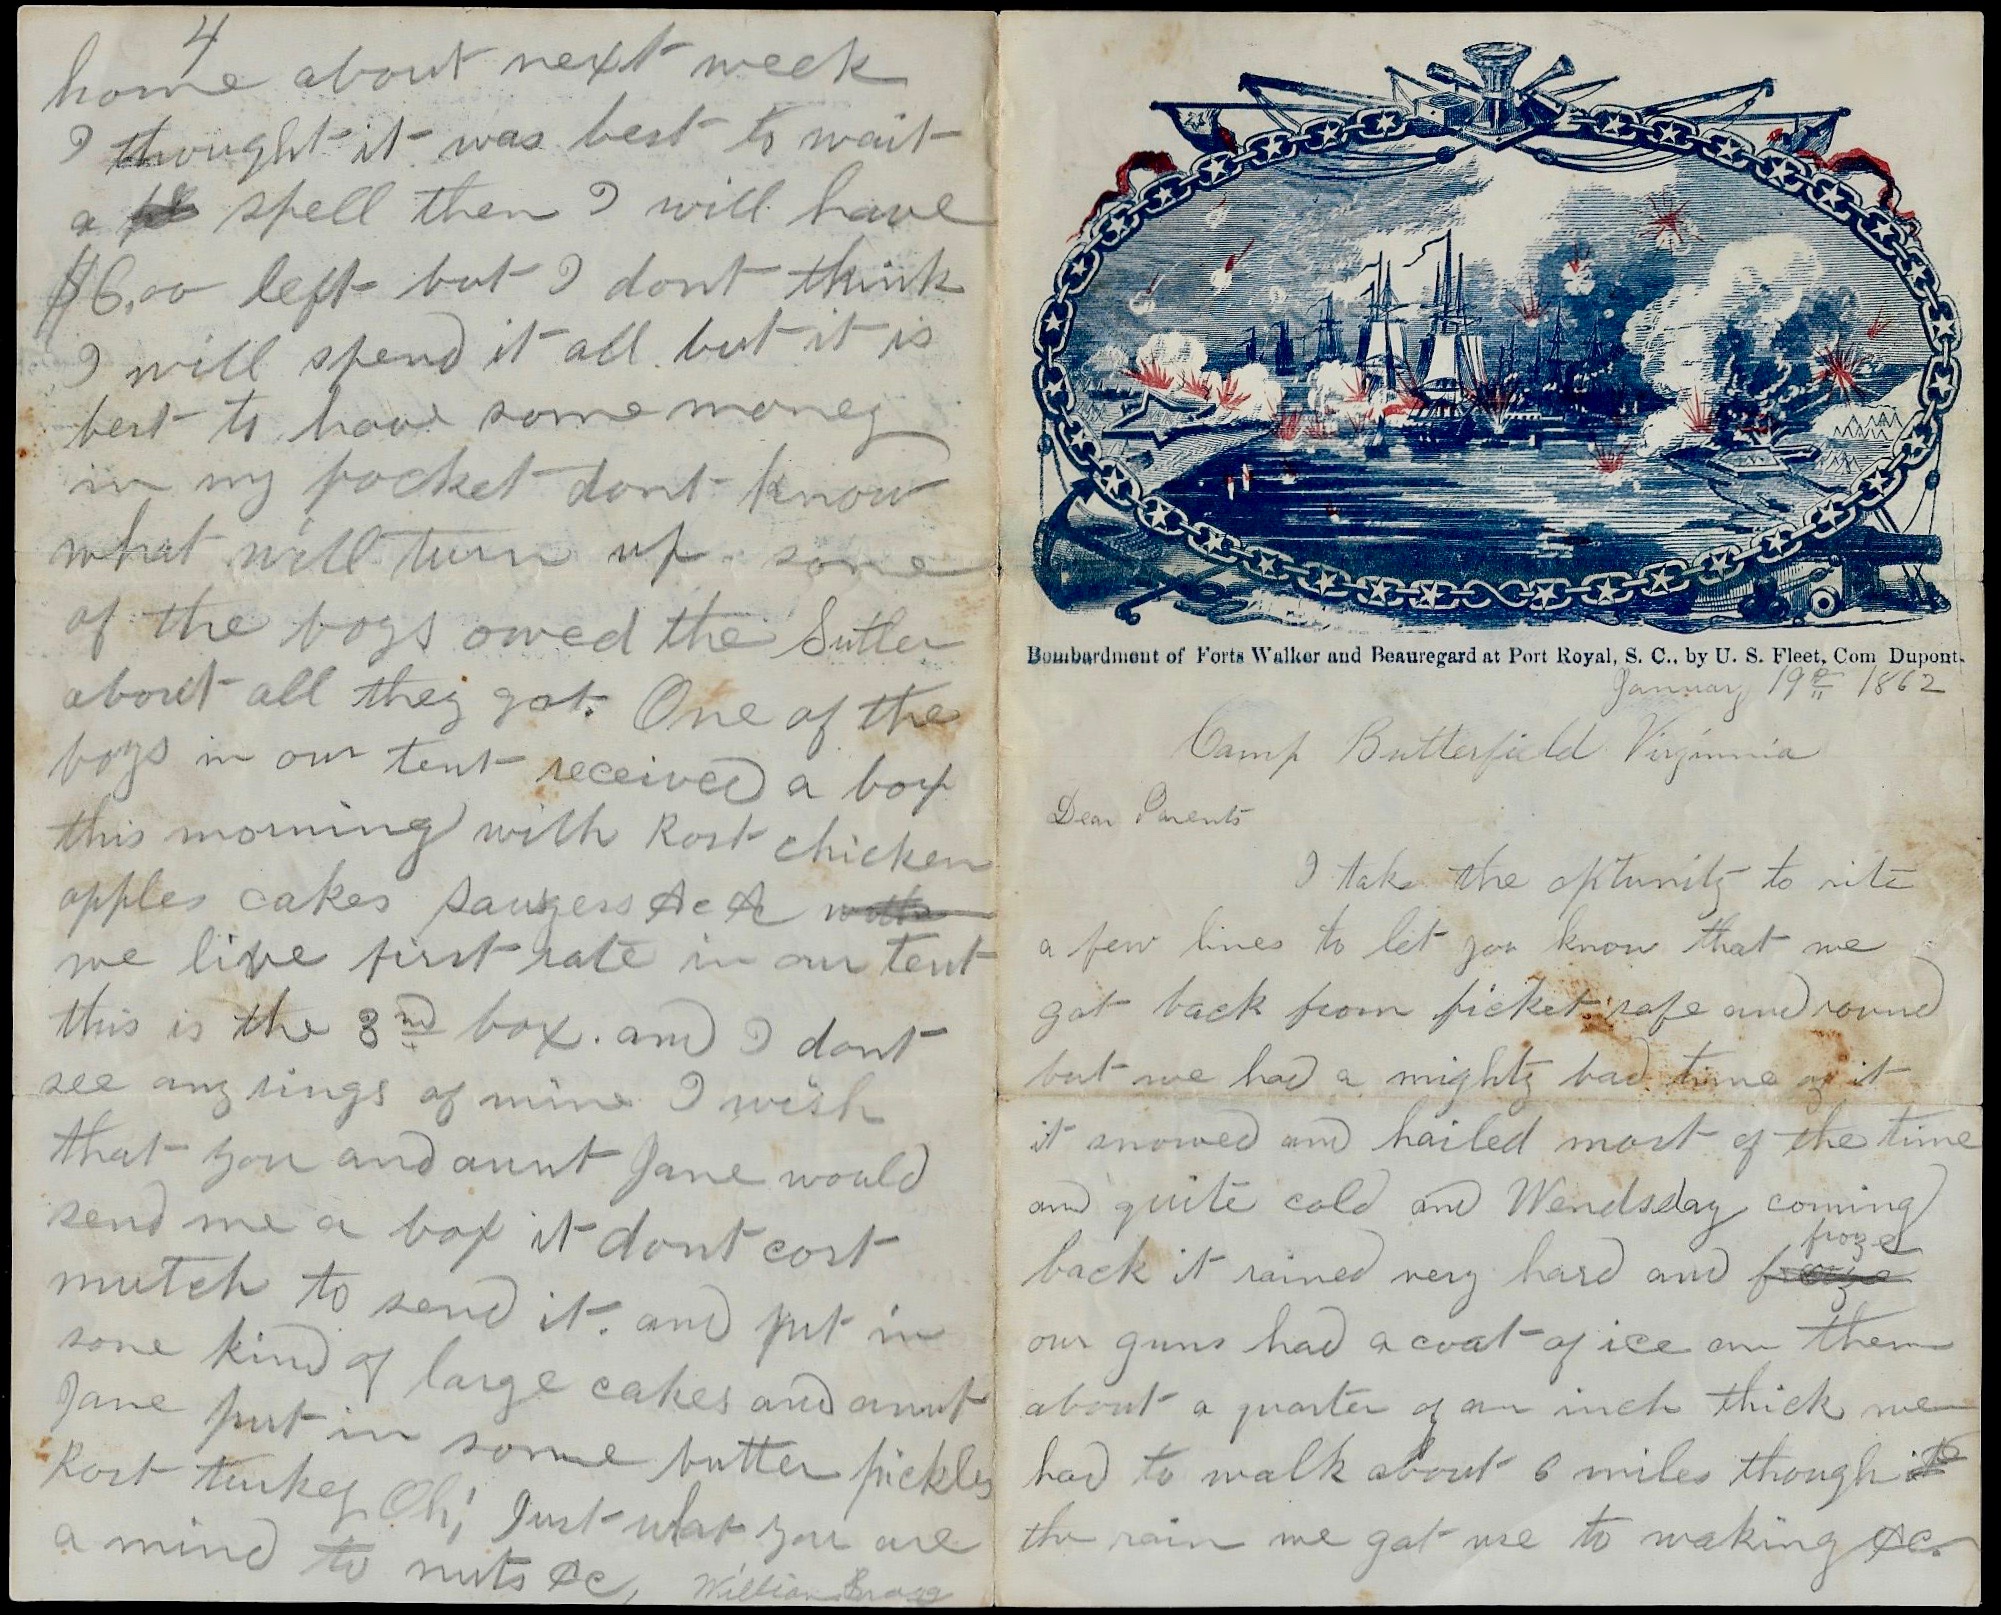 4
home about next week
I thought it was best to wait
a spell then I will have
$6.00 left but I dont think
I will spend it all but it is
best to have some money
in my pocket dont know
what will turn up. some
of the boys owed the Sutler
about all they got. One of the
boys in our tent received a box
this morning with Rost chicken
apples cakes sausgess &c &c with
we live first rate in our tent
this is the 3nd box. and I dont
see any sings of mine I wish
that you and aunt Jane would
send me a box it dont cost
mutch to send it. and put in
some kind of large cakes and aunt
Jane put in some butter pickles
Rost turkey Oh! Just what you are
a mind to nuts &c,
William
Bombardment of Forts Walker and Beauregard at Port Royal, S. C., by U. S. Fleet, Com Dupont.
January 19th 1862
Camp Butterfield Virginnia
Dear Parents
I take the optunity to rite
a few lines to let you know that we
got back from picket safe and sound
but we had a mighty bad time of it
it snowed and hailed most of the time
and quite cold and Wendsday coming
froze
back it rained very hard and freeze
our guns had a coat of ice on them
about a quarter of an inch thick we
had to walk about 6 miles though
the rain we got use to waking &c.